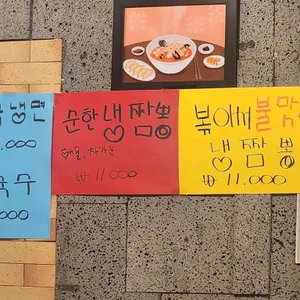 냉면
,000
국수
,000
순한 내
짬뽕
해물, 차가운
₩ 11,000
볶아서 불맛
내 짬뽕
₩ 11,000